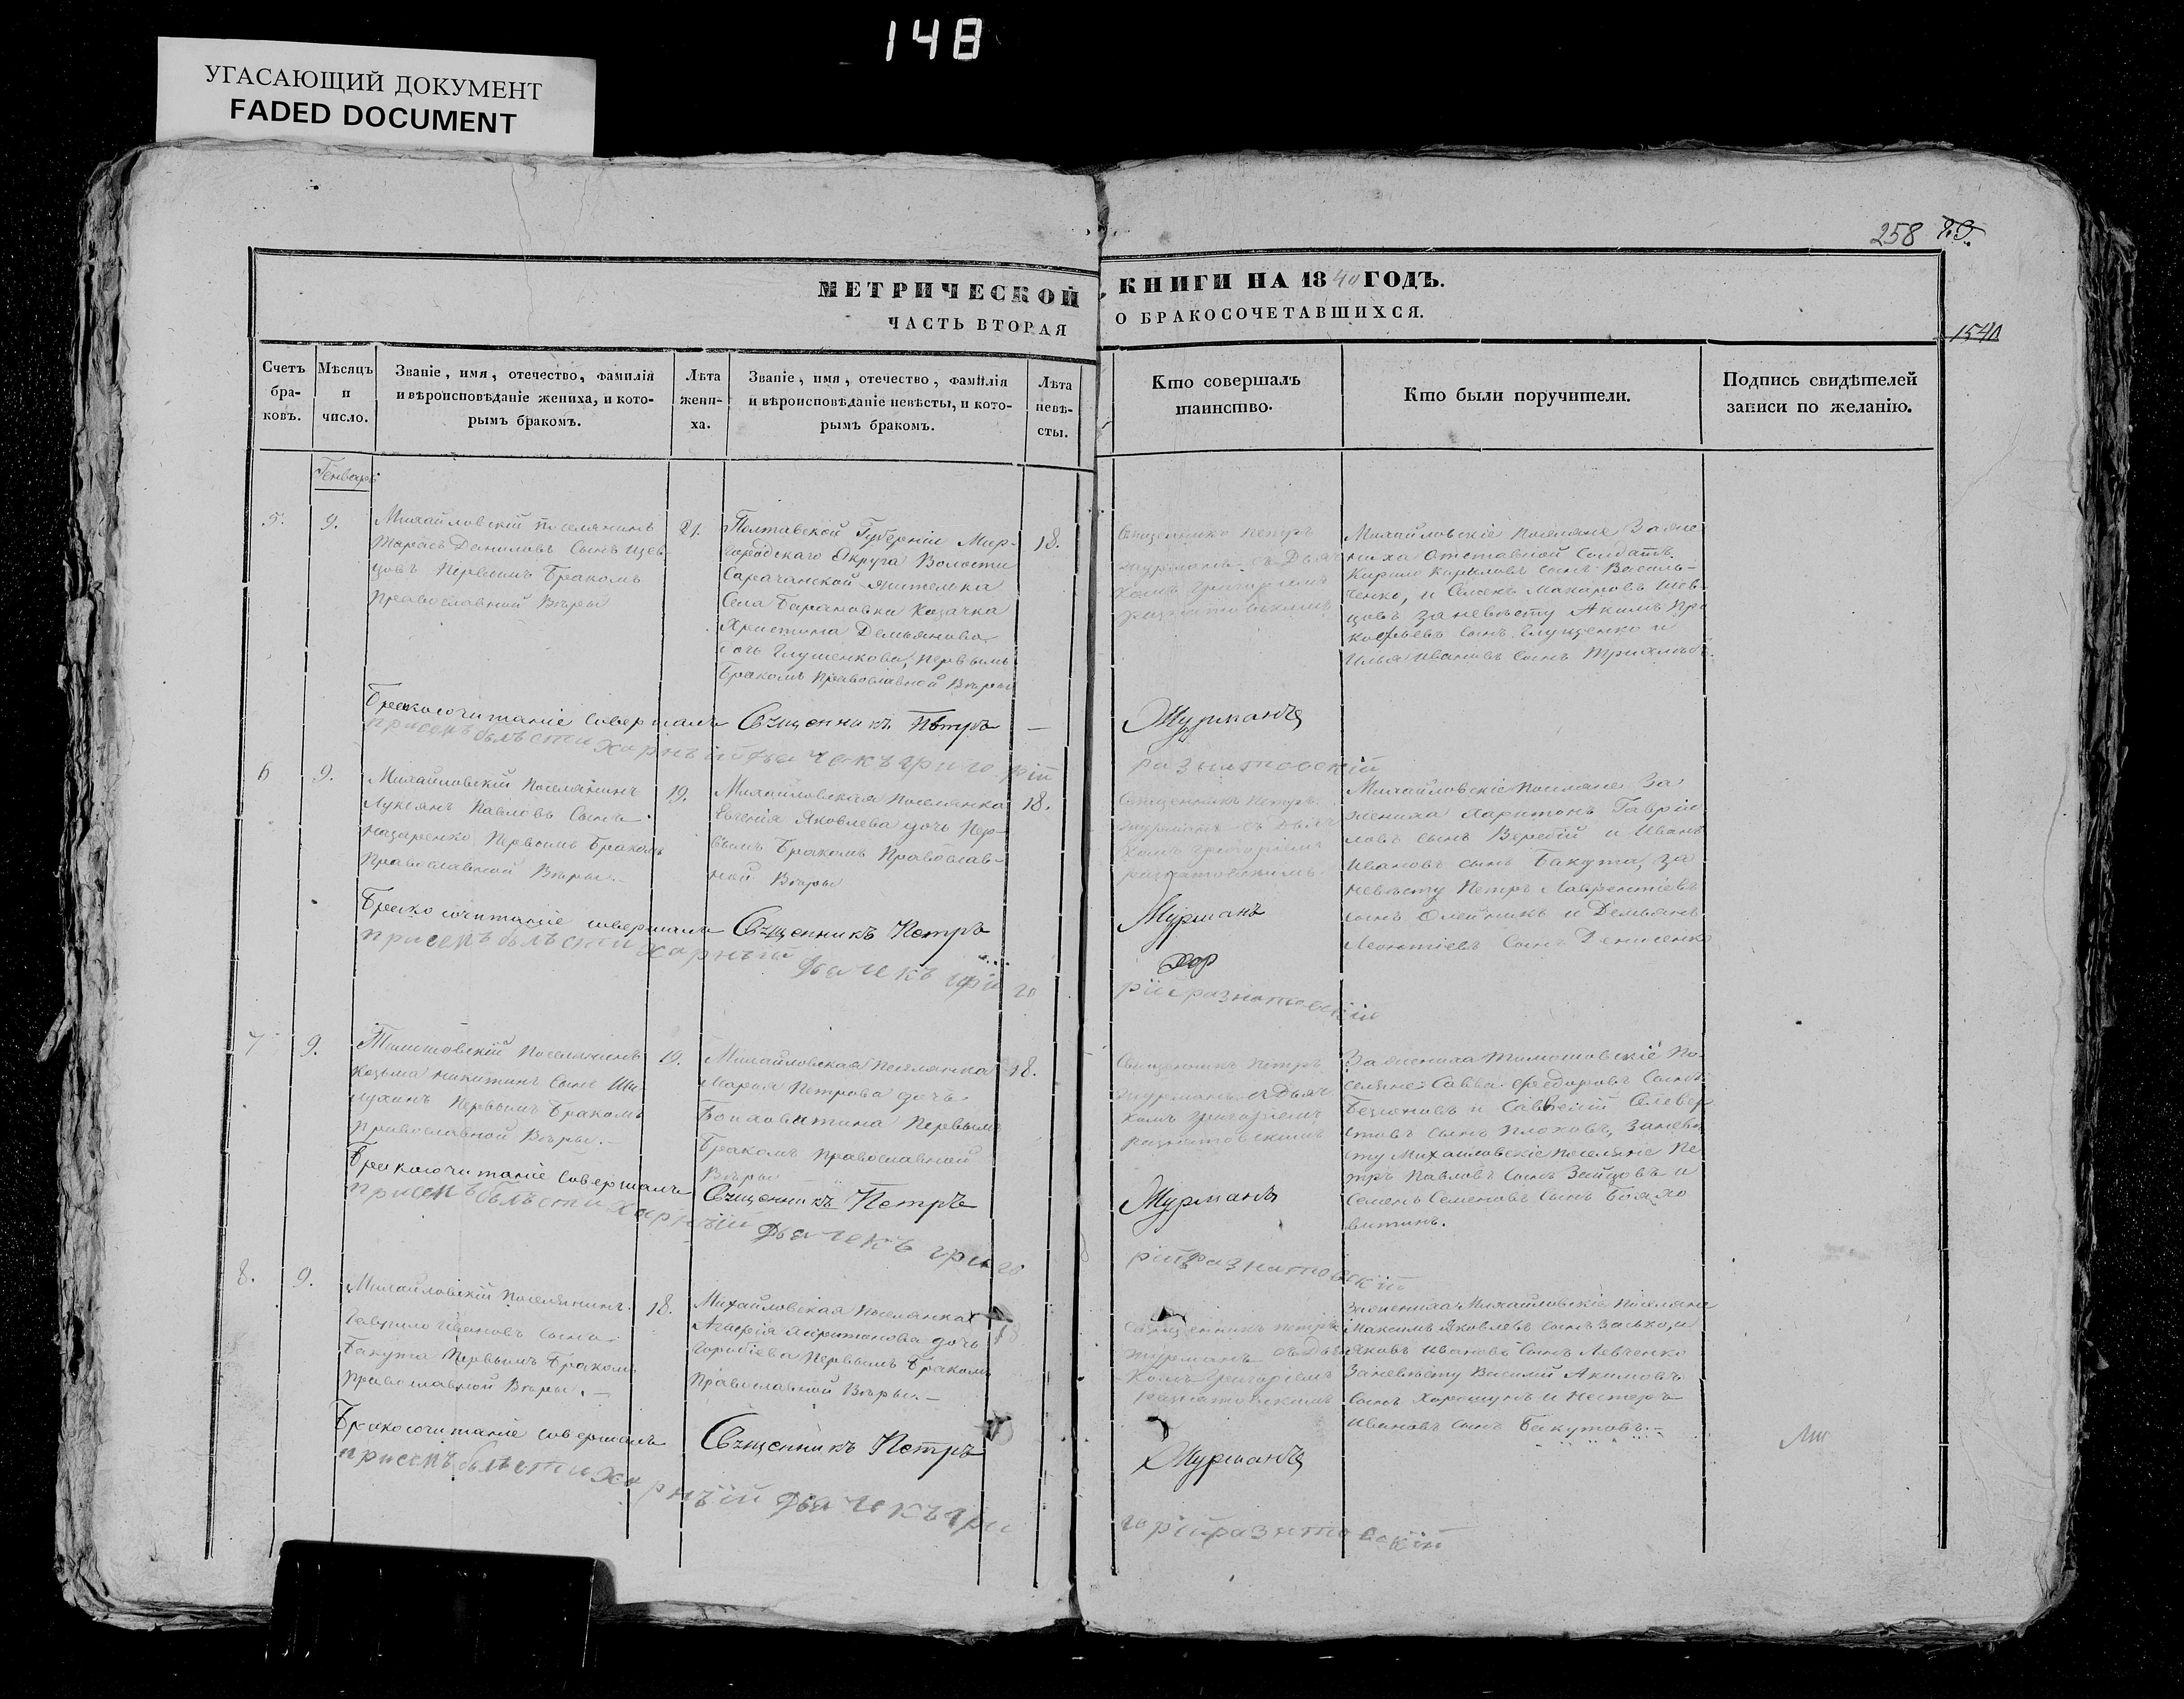 148
УГАСАЮЩИЙ ДОКУМЕНТ
FADED DOCUMENT
258
МЕТРИЧЕСКОЙ КНИГИ НА 1840 ГОДЪ.
ЧАСТЬ ВТОРАЯ О БРАКОСОЧЕТАВШИХСЯ.
1541
Счетъ браковъ.
Мѣсяцъ и число.
Званіе, имя, отечество, фамилія
и вѣроисповѣданіе жениха, и кото-
рымъ бракомъ.
Лѣта
жени-
ха.
Званіе, имя, отечество, фамилія
и вѣроисповѣданіе невѣсты, и кото-
рымъ бракомъ.
Лѣта
невѣ-
сты.
Кто совершалъ
таинство.
Кто были поручители.
Подпись свидѣтелей
записи по желанію.
Генварь
5.
9.
Михайловскій поселянинъ
Тарасъ Даниловъ сынъ Шев-
цовъ первымъ бракомъ
православной вѣры
21.
Полтавской Губерніи Мир-
городскаго Округа Волости
Сарачанской жителька
Села Барановки козачка
Христина Демьянова
дочь Глущенкова, первымъ
бракомъ православной вѣры
18.
Священникъ Петръ
Журманъ съ Дьяч
комъ Григоріемъ
Разнатовскимъ
Михайловскіе поселяне За же
ниха Отставной Солдатъ
Кирило Кириловъ сынъ Василь-
ченко, и Семенъ Макаровъ Шев-
цовъ за невѣсту Акимъ Про
кофьевъ сынъ Глущенко и
Илья Ивановъ сынъ
Бракосочитаніе совершалъ Священникъ Петръ Журманъ
присемъ былъ стихарный дьячекъ григорій разнатовскій
6
9.
Михайловскій Поселянинъ
Лукьянъ Павловъ сынъ
Назаренко первымъ бракомъ
православной вѣры.
19.
Михайловская поселянка
Евгенія Яковлева дочь пер-
вымъ бракомъ православ-
ной вѣры
18.
Священникъ Петръ
Журманъ съ Дьяч
комъ Григоріемъ
Разнатовскимъ.
Михайловскіе поселяне За
жениха Харитонъ Гаврiи
ловъ сынъ Веребій и Иванъ
Ивановъ сынъ Бакута, за
невѣсту Петръ Лаврентіевъ
сынъ Олейникъ и Демьянъ
Леонтіевъ сынъ Денисенко
Бракосочитаніе совершалъ Священникъ Петръ Журманъ
присемъ былъ стихарный дьячекъ григо рій разнатовскій
7
9.
Тимошовскій поселянинъ
Козьма Никитинъ сынъ Ши
пухинъ первымъ бракомъ
православной вѣры.
19.
Михайловская поселянка
Марія Петрова дочь
Болховитина первымъ
бракомъ православной
вѣры
18.
Священникъ Петръ
Журманъ съ Дьяч
комъ Григоріемъ
Разнатовскимъ
За жениха Тимошовскіе по
селяне: Савва Федоровъ сынъ
и Савелій
сынъ Плоховъ, за невѣ
сту Михайловскіе поселяне Пе
тръ Павловъ сынъ Зайцовъ и
Семенъ Семеновъ сынъ Болхо
витинъ.
Бракосочитаніе совершалъ Священникъ Петръ Журманъ
присемъ былъ стихарный дьячекъ григо рій разнатовскій
8.
9.
Михайловскій поселянинъ
Гаврило Ивановъ сынъ
Бакута первымъ бракомъ
православной вѣры.
18.
Михайловская поселянка
Агафія Харитонова дочь
первымъ бракомъ
православной вѣры.
18
Священникъ Петръ
Журманъ съ Дья
комъ Григоріемъ
Разнатовскимъ
За жениха Михайловскіе поселяне
Максимъ Яковлевъ сынъ Засько, и
Яковъ Ивановъ сынъ Левченко
За невѣсту Василій Акимовъ
сынъ Хорошунъ и Нестеръ
Ивановъ сынъ Бакутовъ.
Бракосочитаніе совершалъ Священникъ Петръ Журманъ
присемъ былъ стихарный дьячекъ григорій разнатовскій